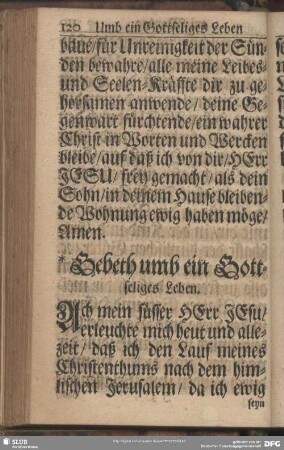 120 Umb ein Gottseliges Leben
baue/für Unreinigkeit der Sün-
den bewahre/alle meine Leibes-
und Seelen-Kräffte dir zu ge-
horsamen anwende/deine Ge-
genwart fürchtende/ein wahrer
Christ in Worten und Wercken
bleibe/auf daß ich von dir/HErr
JESU/frey gemacht/als dein
Sohn/in deinem Hause bleiben-
de Wohnung ewig haben möge/
Amen.
* Gebeth umb ein Gott-
seliges Leben.
ACh mein süsser HErr JEsu/
erleuchte mich heut und alle-
zeit/daß ich den Lauf meines
Christenthums nach dem him-
lischen Jerusalem/da ich ewig
seyn
SLUB
DFG